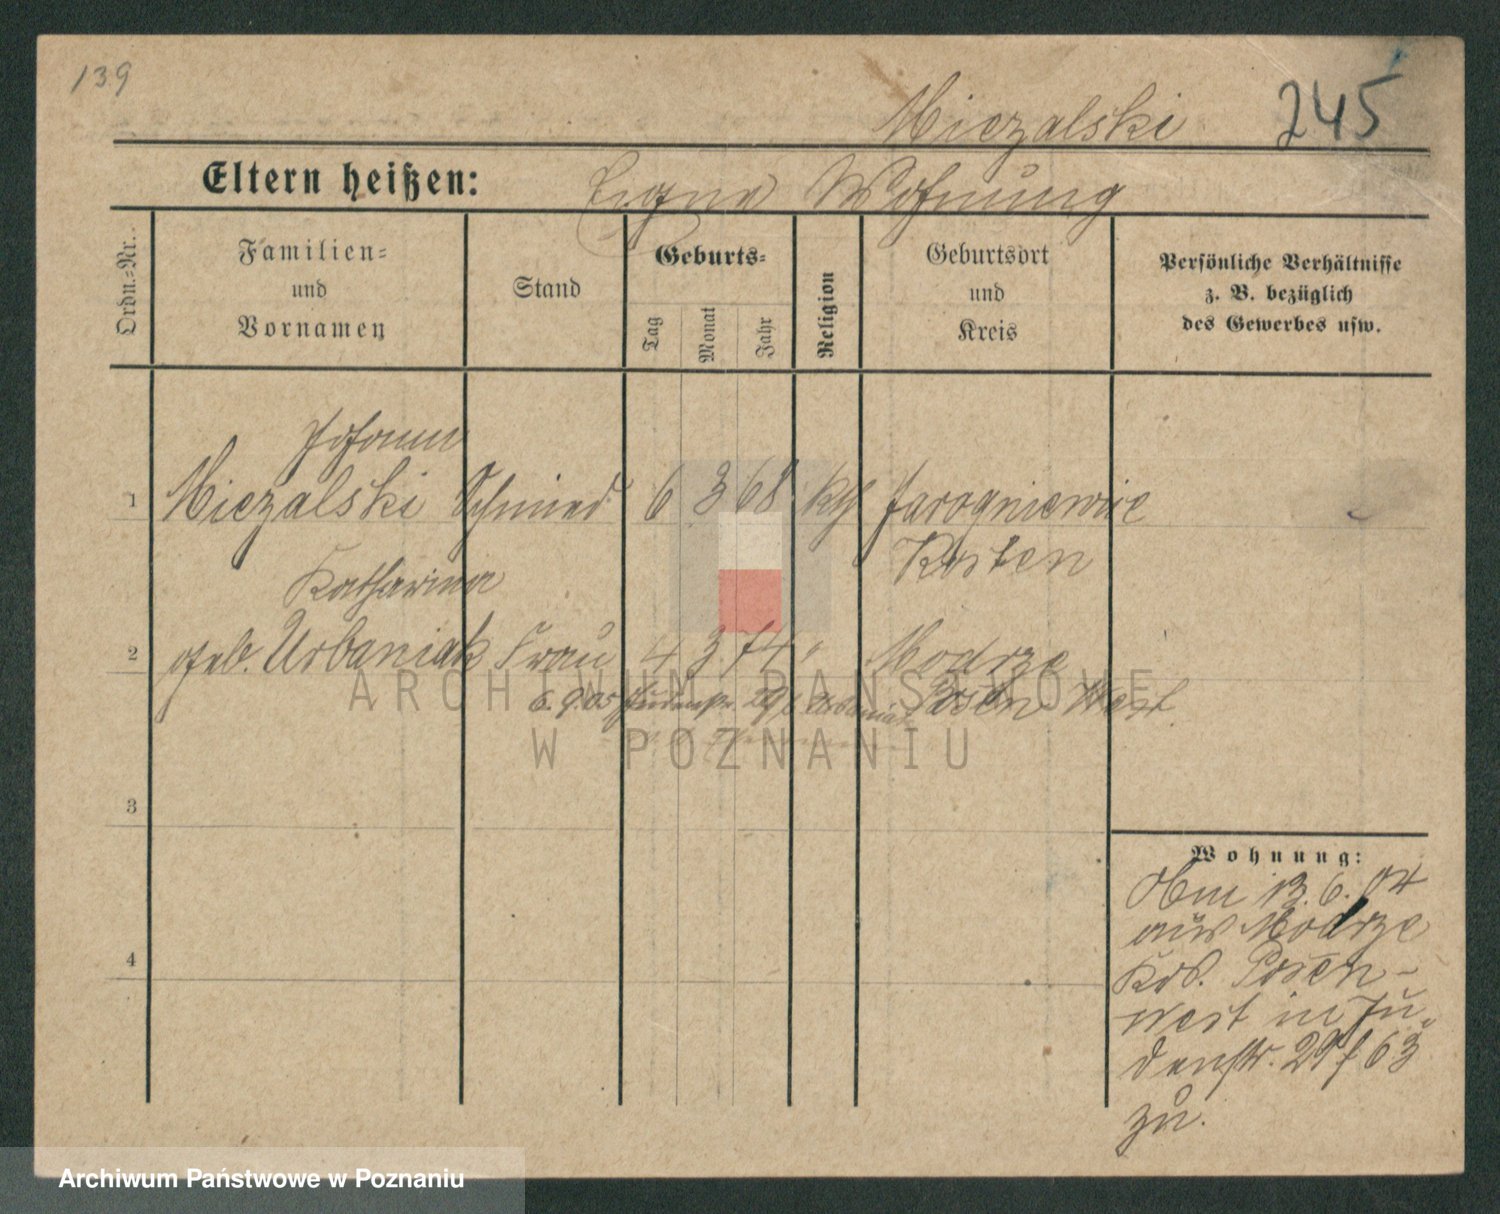 139
Miezalski 245
Eltern heißen: Eigene Wohnung
Ordn.=Nr.
Familien=
und
Vornamen
Stand
Geburts=
Tag
Monat
Jahr
Religion
Geburtsort
und
Kreis
Persönliche Verhältnisse
z. B. bezüglich
des Gewerbes usw.
Johann
1 Miezalski Schmied 6 3 68 kth Jarogniewice
Kosten
Katharina
2 geb. Urbaniak Frau 4 3 74 " Modrze
Posen West
6.9.05 Judenstr 29
3
4
Wohnung:
Am 13.6.04
aus Modrze
Krs. Posen-
West in Ju-
denstr. 29 f 63
zu.
ARCHIWUM PAŃSTWOWE
W POZNANIU
Archiwum Państwowe w Poznaniu